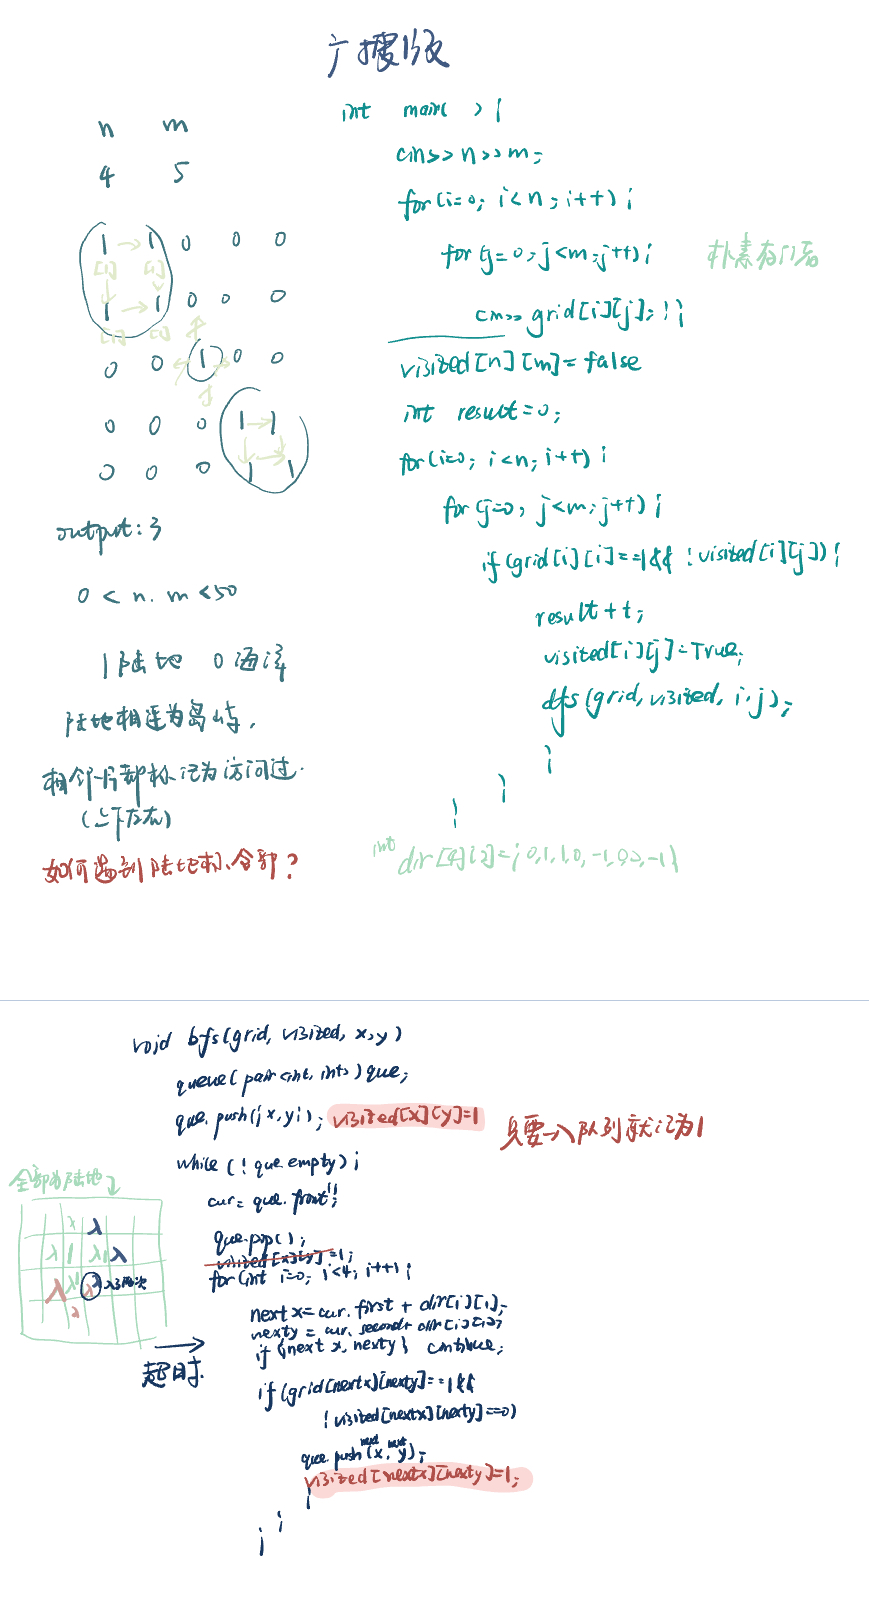 广搜版
n m
4 5
1 → 1 0 0 0
[1] [1]
1 → 1 0 0 0
0 0 1 0 0
0 0 0 1 → 1
0 0 0 1 1
output: 3
0 < n. m < 50
1 陆地 0 海洋
陆地相连为岛屿.
相邻 都标记为访问过.
(上下左右)
如何遇到陆地 全部?
int main( ) {
cin>> n >> m;
for(i=0; i<n; i++) {
for(j=0; j<m; j++) {
cin>> grid[i][j]; } }
朴素
visited[n][m]=false
int result=0;
for(i=0; i<n; i++) {
for(j=0; j<m; j++) {
if(grid[i][i]==1&& !visited[i][j]) {
result++;
visited[i][j]=True;
dfs(grid, visited, i, j);
}
}
}
int dir[4][2]={0,1,1,0,-1,0,0,-1}
void bfs(grid, visited, x, y)
queue(pair<int, int>) que;
que.push({x, y}); visited[x][y]=1 只要一入队列就记为1
while(!que.empty) {
全部为陆地
cur= que.front
que.pop();
visited[x][y]=1;
for(int i=0; i<4; i++) {
入3两次
next x= cur.first + dir[i][1];
nexty = cur.second+ dir[i][2];
if (next x, nexty) continue;
超时.
if(grid[nextx][nexty]==1&&
!visited[nextx][nexty]==0)
que.push(next x, next y);
visited[nextx][nexty]=1;
}
}
}